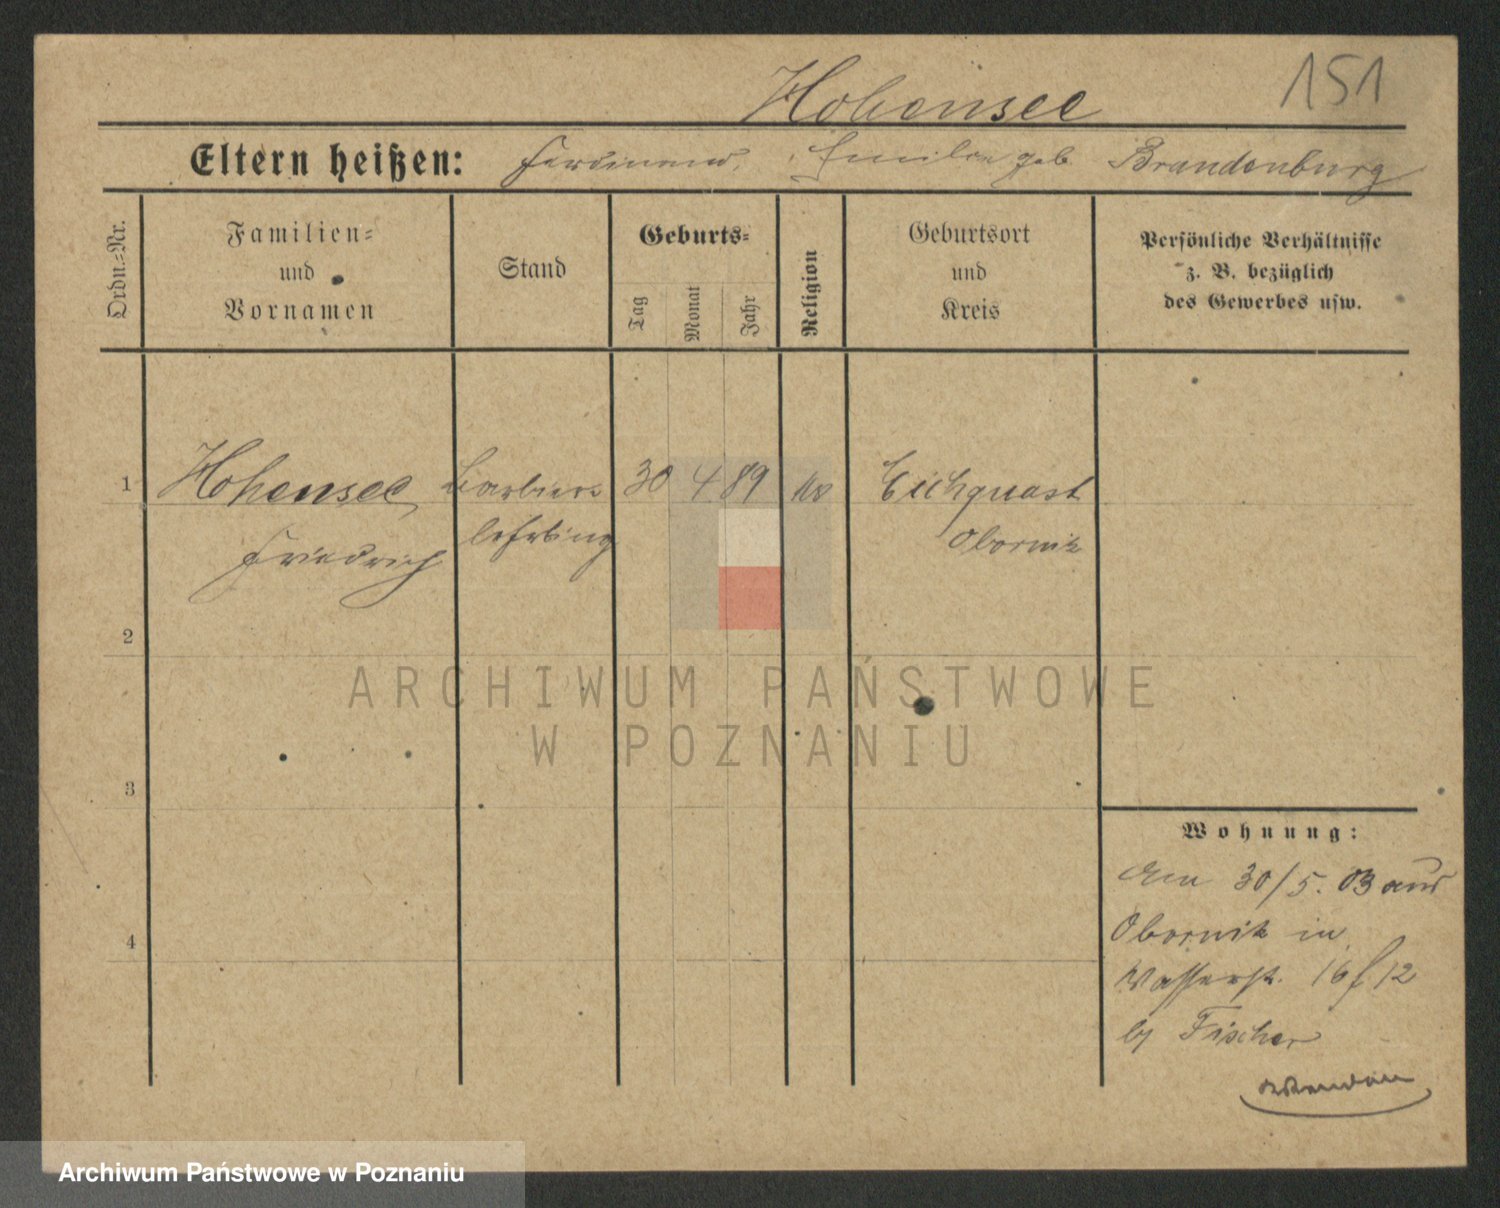 Hohensee
151
Eltern heißen: Ferdinand, Emilie geb. Brandenburg
Ordn.-Nr.
Familien-
und
Vornamen
Stand
Geburts-
Tag
Monat
Jahr
Religion
Geburtsort
und
Kreis
Persönliche Verhältnisse
z. B. bezüglich
des Gewerbes usw.
1 Hohensee, Barbier 30 4 89 Eichquast
Friedrich lehrling Obornik
2
ARCHIWUM PAŃSTWOWE
W POZNANIU
3
Wohnung:
Am 30/5. 03 aus
4
Obornik in
Wasserst. 16 f 12
by Fischer
Archiwum Państwowe w Poznaniu